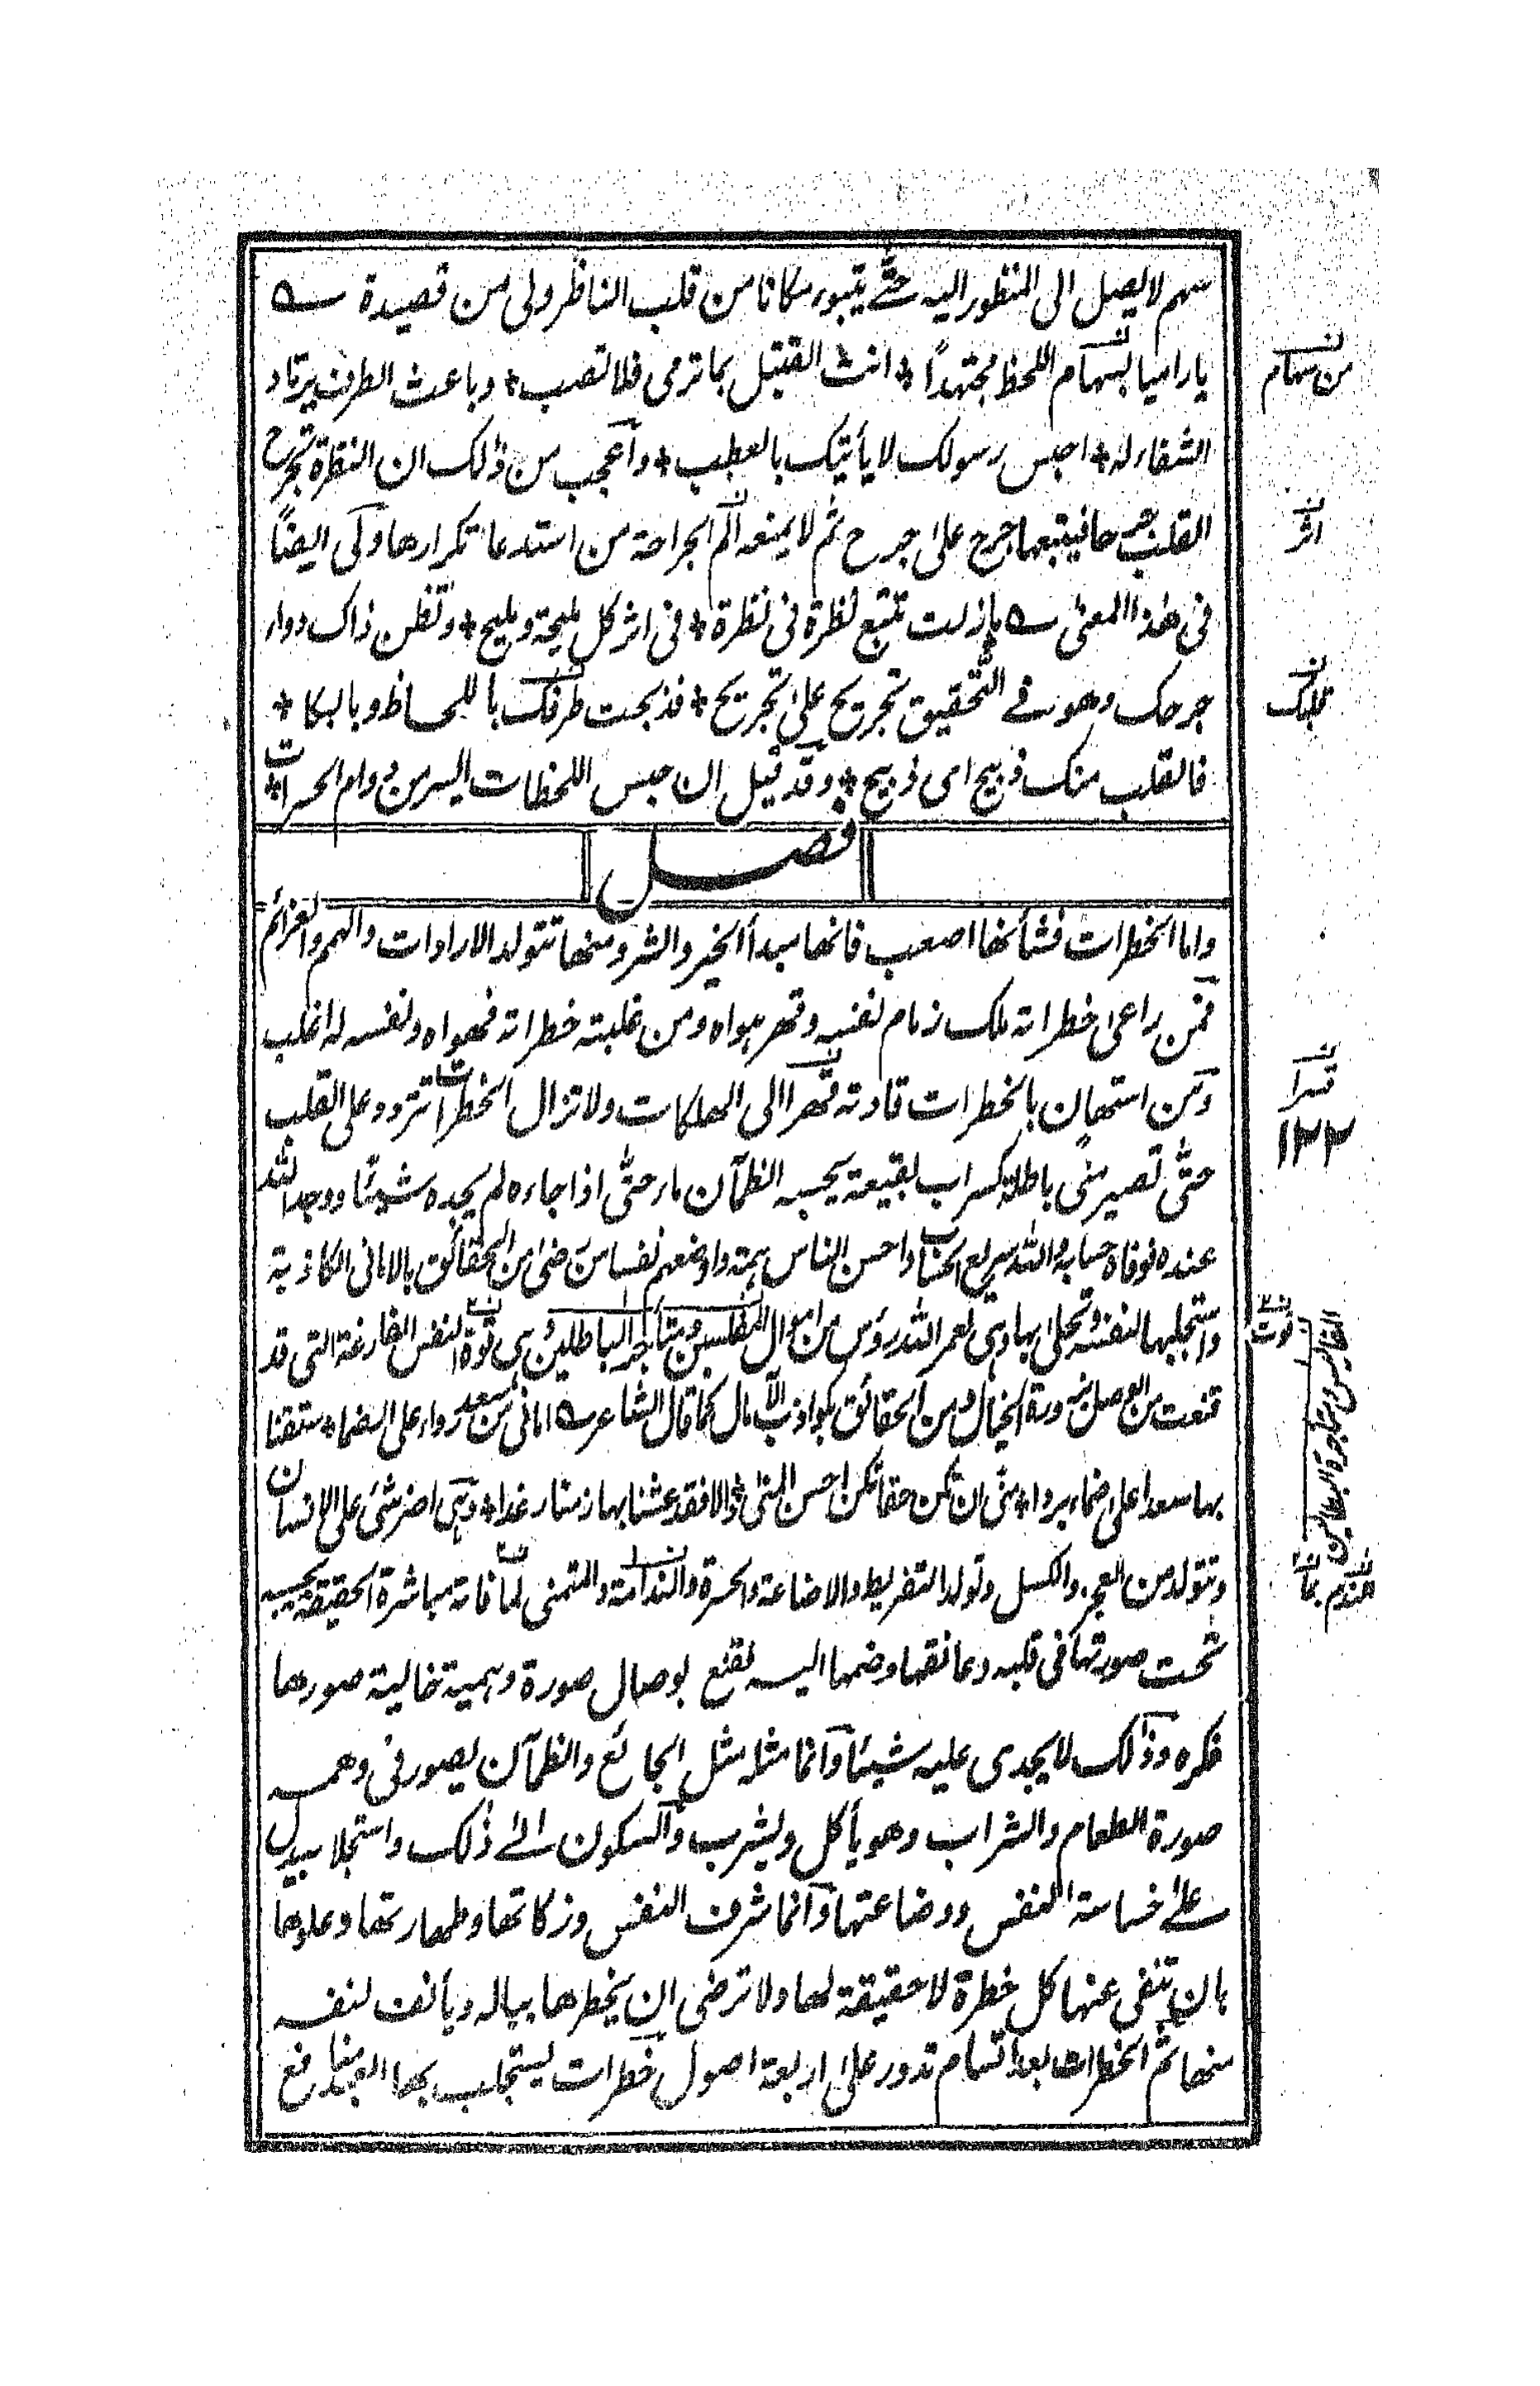 سهم لا يصل الى المنظور اليه حتى يتبوء مكانا من قلب الناظر ولى من قصيدة
يا راميا بسهام اللحظ مجتهداً * انت القتيل بما ترمى فلا تصب * وباعث الطرف يرتاد
الشفاء له * احبس رسولك لا يأتيك بالعطب * واعجب من ذلك ان النظرة تجرح
القلب جرحا فيتبعها جرح على جرح ثم لا يمنعه الم الجراحة من استدعا تكرارها ولى ايضاً
فى هذا المعنى ما زلت تتبع نظرة فى نظرة * فى اثر كل مليحة ومليح * وتظن ذاك دواء
جرحك وهو فے التحقيق تجريح على تجريح * فذبحت طرفك باللحاظ وبالبكا *
فالقلب منك ذبيح اى ذبيح * وقد قيل ان حبس اللحظات ايسر من دوام الحسرات *
فصل
واما الخطرات فشأنها اصعب فانها مبدأ الخير والشر ومنها تتولد الارادات والهمم والعزائم
فمن راعى خطراته ملك زمام نفسه وقهر هواه ومن غلبته خطراته فهواه ونفسه له اغلب
ومن استهان بالخطرات قادته قهرا الى الهلكات ولا تزال الخطرات تتردد على القلب
حتى تصير منى باطلة كسراب بقيعة يحسبه الظمآن ماء حتى اذا جاءه لم يجده شيئا ووجد الله
عنده فوفاه حسابه والله سريع الحساب واحسن الناس همته واوضعهم نفسا من رضى من الحقائق بالامانى الكاذبة
واستجلبها لنفسه وتحلى بها وهى لعمر الله رؤس من اموال المفلسين ومتاجر الباطلين وهى قوة النفس الفارغة التى قد
قنعت من الوصل بزورة الخيال ومن الحقائق بكواذب الآمال كما قال الشاعر امانى من سعد رواء على الضما * سقتنا
بها سعدا على ضماء بردا * منى ان تكن حقا تكن احسن المنى * والا فقد عشنا بها زمنا رغدا * وهى اضر شئ على الانسان
وتتولد من العجز والكسل وتولد التفريط والاضاعة والحسرة والندامة والتمنى لما فاته مباشرة الحقيقة بجسه
نحت صورتها فى قلبه وعانقها وضمها اليه فقنع بوصال صورة وهمية خالية صورها
فكره وذلك لا يجدى عليه شيئا وانما مثله مثل الجائع والظمآن يصور فى وهمه
صورة الطعام والشراب وهو يأكل ويشرب والسكون الے ذلك واستجلابه يدل
علے خساسة النفس ووضاعتها وانما شرف النفس وزكاتها وطهارتها وعلوها
بان ينفى عنها كل خطرة لا حقيقة لها ولا ترضى ان يخطرها بباله ويأنف لنفسه
منها ثم الخطرات بعد اقسام تدور على اربعة اصول خطرات يستجلب بها العبد منافع
من سهام
اثر
قلبك
قسرا
١٢٢
قوت